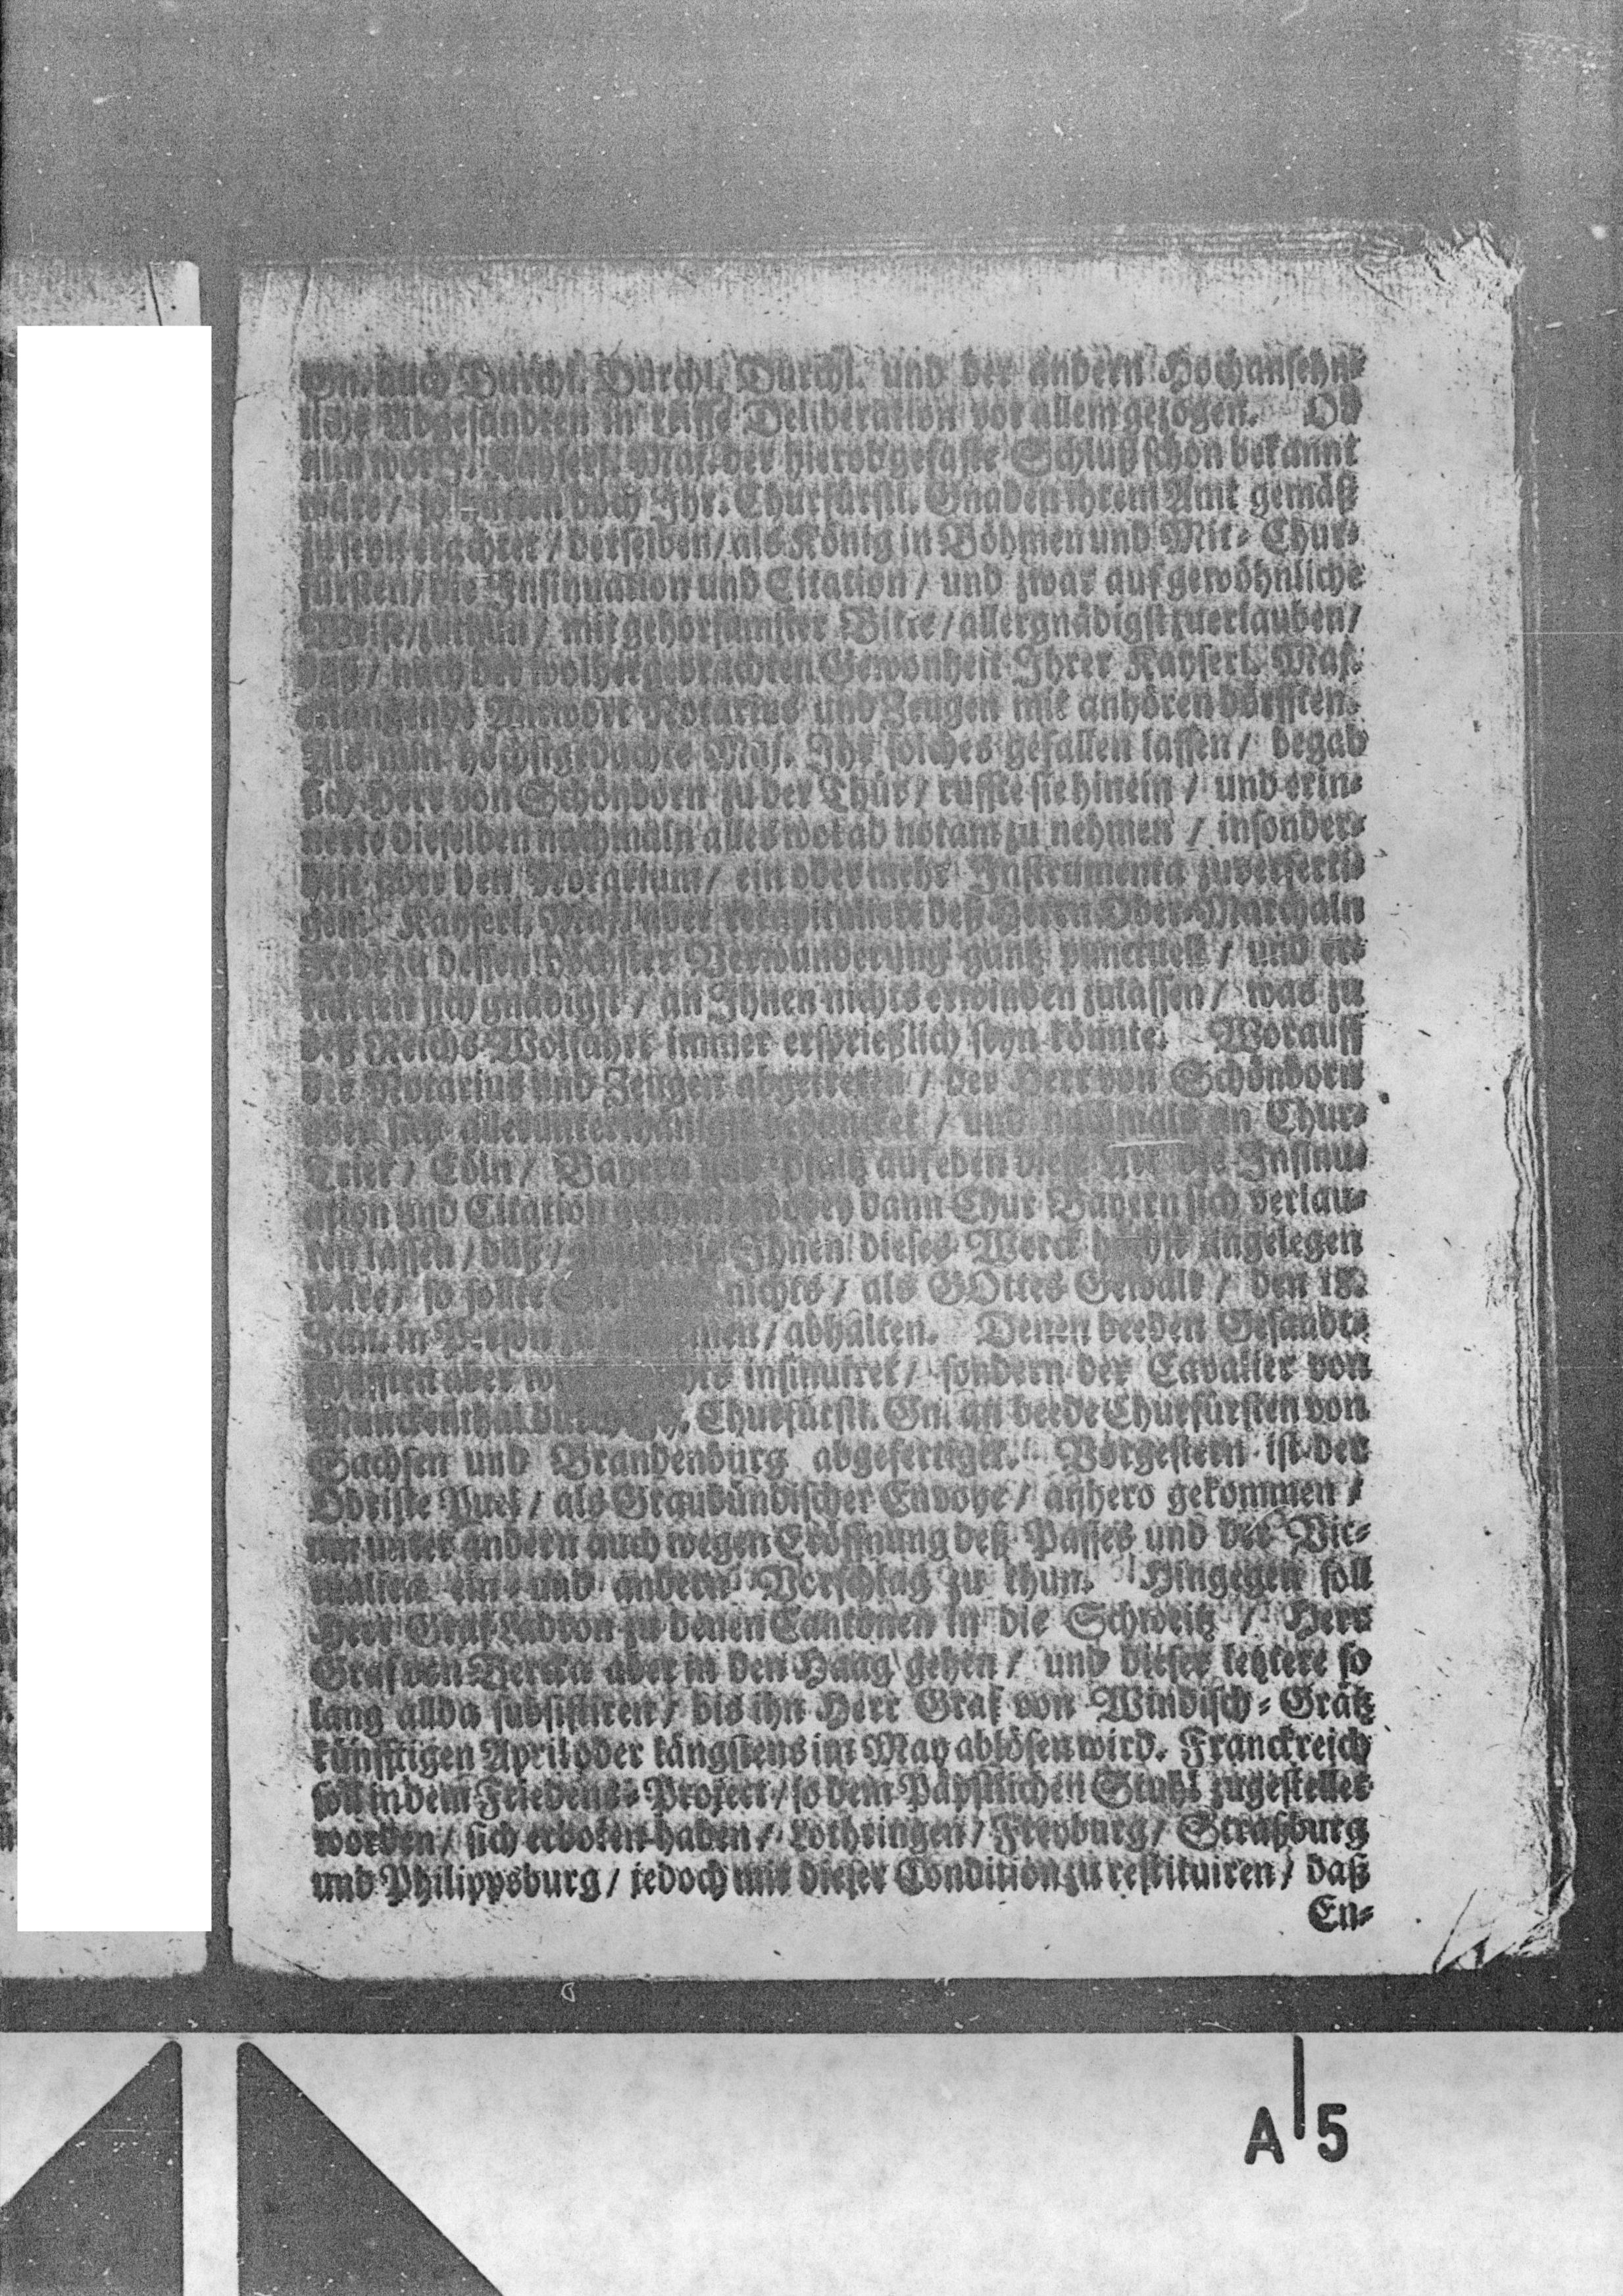 Gn. auch Durchl. Durchl. Durchl. und der andern Hochansehn-
liche Abgesandten in reiffe Deliberation vor allem gezogen. Ob
nun wol J. Kayserl. Maj. der hierob gefaste Schluß schon bekannt
wäre / so hätten doch Ihr. Churfürstl. Gnaden ihrem Amt gemäß
zu seyn erachtet / derselben / als König in Böhmen und Mit-Chur-
fürsten / die Insinuation und Citation / und zwar auf gewöhnliche
Weise / zuthun / mit gehorsamster Bitte / allergnädigst zuerlauben /
daß / nach der wolhergebrachten Gewonheit Ihrer Kayserl. Maj.
Antwort Notarius und Zeugen mit anhören dörfften.
Als nun höchstgedachte Maj. Ihr solches gefallen lassen / begab
sich Herr von Schönborn zu der Thür / ruffte sie hinein / und erin-
nerte dieselben nachmaln alles wol ad notam zu nehmen / insonder-
heit aber den Notarium / ein oder mehr Instrumenta zuverferti-
gen. Kayserl. Maj. aber recapitulirte deß Herrn Ober-Marchaln
Rede zu dessen höchster Verwunderung gantz punctuell / und er-
klärten sich gnädigst / an Ihnen nichts erwinden zulassen / was zu
deß Reichs Wolfahrt immer ersprießlich seyn könnte. Worauff
der Notarius und Zeugen abgetretten / der Herr von Schönborn
aber sich allerunterthänigst bedancket / und nachmals an Chur-
Trier / Cöln / Bayern und Pfaltz auf eben diese Art die Insinu-
ation und Citation gethan / wobey dann Chur Bayern sich verlau-
ten lassen / daß / Ihnen dieses Werck höchst angelegen
wäre / so solte nichts / als GOttes Gewalt / den 18.
Jan. in Person abhalten. Denen beeden Gesandt-
schafften aber insinuiret / sondern der Cavalier von
Churfürstl. Gn. an beede Churfürsten von
Sachsen und Brandenburg abgefertiget. Vorgestern ist der
Obriste / als Graubündischer Envoye / anhero gekommen /
um unter andern auch wegen Eröffnung deß Passes und der Vic-
tualien ein- und andern Vorschlag zu thun. Hingegen soll
Herr Graf Ladron zu denen Cantonen in die Schweitz / Herr
Graf von Bercka aber in den Haag gehen / und dieser letztere so
lang allda subsistiren / bis ihn Herr Graf von Windisch-Grätz
künfftigen April oder längstens im May ablösen wird. Franckreich
soll in dem Friedens-Project / so dem Päpstlichen Stuhl zugestellet
worden / sich erboten haben / Lothringen / Freyburg / Straßburg
und Philippsburg / jedoch mit dieser Condition zu restituiren / daß
En-
A 5